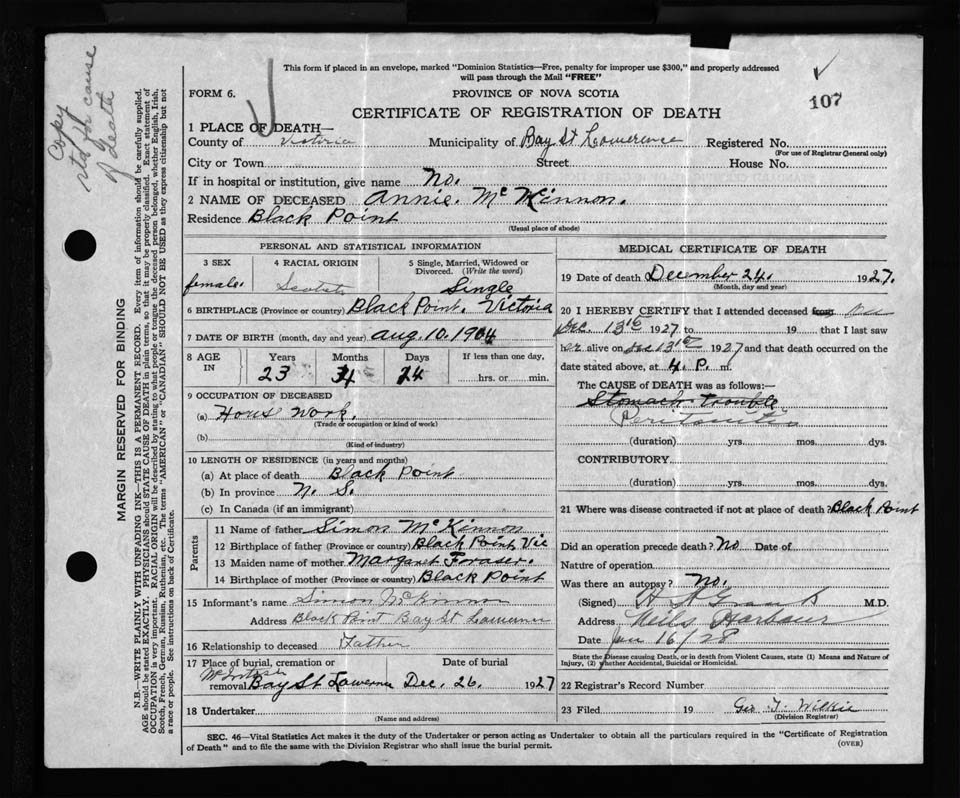 This form if placed in an envelope, marked "Dominion Statistics—Free, penalty for improper use $300," and properly addressed
will pass through the Mail "FREE"
FORM 6. PROVINCE OF NOVA SCOTIA
107
CERTIFICATE OF REGISTRATION OF DEATH
Copy
for cause
of death
MARGIN RESERVED FOR BINDING
N.B.—WRITE PLAINLY WITH UNFADING INK—THIS IS A PERMANENT RECORD. Every item of information should be carefully supplied.
AGE should be stated EXACTLY. PHYSICIANS should STATE CAUSE OF DEATH in plain terms, so that it may be properly classified. Exact statement of
OCCUPATION is very important. RACIAL ORIGIN will be described by stating to what people or tongue the deceased person belonged, whether English, Irish,
Scotch, French, German, Russian, Ruthenian, etc. The terms "AMERICAN" or "CANADIAN" SHOULD NOT BE USED as they express citizenship but not
a race or people. See instructions on back of Certificate.
1 PLACE OF DEATH—
County of Victoria Municipality of Bay St Lawerence Registered No.
(For use of Registrar General only)
City or Town Street House No.
If in hospital or institution, give name No.
2 NAME OF DECEASED Annie. McKinnon.
Residence Black Point
(Usual place of abode)
PERSONAL AND STATISTICAL INFORMATION
3 SEX 4 RACIAL ORIGIN 5 Single, Married, Widowed or
Divorced. (Write the word)
female. Scotch Single
6 BIRTHPLACE (Province or country) Black Point. Victoria
7 DATE OF BIRTH (month, day and year) Aug 10. 1904
8 AGE IN Years Months Days If less than one day,
23 4 24 hrs. or min.
9 OCCUPATION OF DECEASED
(a) Hous Work.
(Trade or occupation or kind of work)
(b)
(Kind of industry)
10 LENGTH OF RESIDENCE (in years and months)
(a) At place of death Black Point
(b) In province N. S.
(c) In Canada (if an immigrant)
Parents
11 Name of father Simon McKinnon
12 Birthplace of father (Province or country) Black Point, Vic
13 Maiden name of mother Margaret Fraser.
14 Birthplace of mother (Province or country) Black Point
15 Informant's name Simon McKinnon
Address Black Point Bay St Lawerence
16 Relationship to deceased Father
17 Place of burial, cremation or Date of burial
removal Bay St Lawerence Dec. 26. 1927
18 Undertaker
(Name and address)
MEDICAL CERTIFICATE OF DEATH
19 Date of death December 24. 1927.
(Month, day and year)
20 I HEREBY CERTIFY that I attended deceased from
Dec. 13th 1927 to 19 that I last saw
her alive on Dec 13th 1927 and that death occurred on the
date stated above, at 4. P. m.
The CAUSE of DEATH was as follows:—
Stomach trouble
Peritonitis
(duration) yrs. mos. dys.
CONTRIBUTORY
(duration) yrs. mos. dys.
21 Where was disease contracted if not at place of death? Black Point
Did an operation precede death? No Date of
Nature of operation
Was there an autopsy? No.
(Signed) M.D.
Address Neils Harbour
Date Jan 16/28
State the Disease causing Death, or in death from Violent Causes, state (1) Means and Nature of
Injury, (2) whether Accidental, Suicidal or Homicidal.
22 Registrar's Record Number
23 Filed 19 Geo T. Wilkie
(Division Registrar)
SEC. 46—Vital Statistics Act makes it the duty of the Undertaker or person acting as Undertaker to obtain all the particulars required in the "Certificate of Registration
of Death" and to file the same with the Division Registrar who shall issue the burial permit. (OVER)